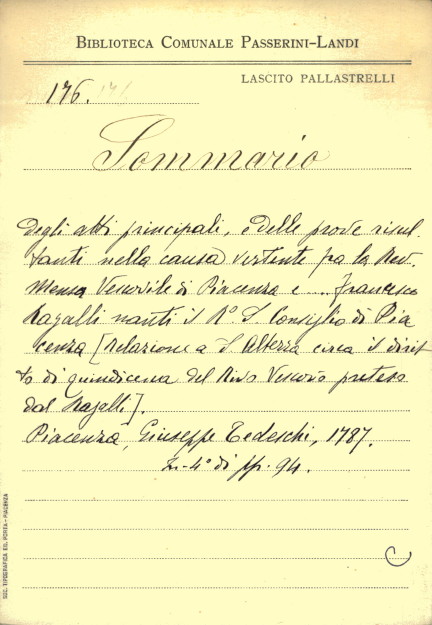 BIBLIOTECA COMUNALE PASSERINI-LANDI
LASCITO PALLASTRELLI
176. 171
Sommario
degli atti principali, e delle prove risul-
tanti nella causa vertente fra la Rev.
Mensa Vescovile di Piacenza e ... Francesco
Razalli nanti il R.º S. Consiglio di Pia
cenza [Relazione a S. Altezza circa il dirit
to di quindicena del Rivo Vescovo preteso
dal Razalli].
Piacenza, Giuseppe Tedeschi, 1787.
In-4º di pp. 94.
SOC. TIPOGRAFICA ED. PORTA - PIACENZA